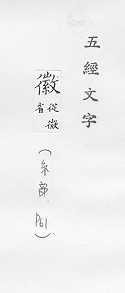 五經文字
徽從微省
(糸部, P61)